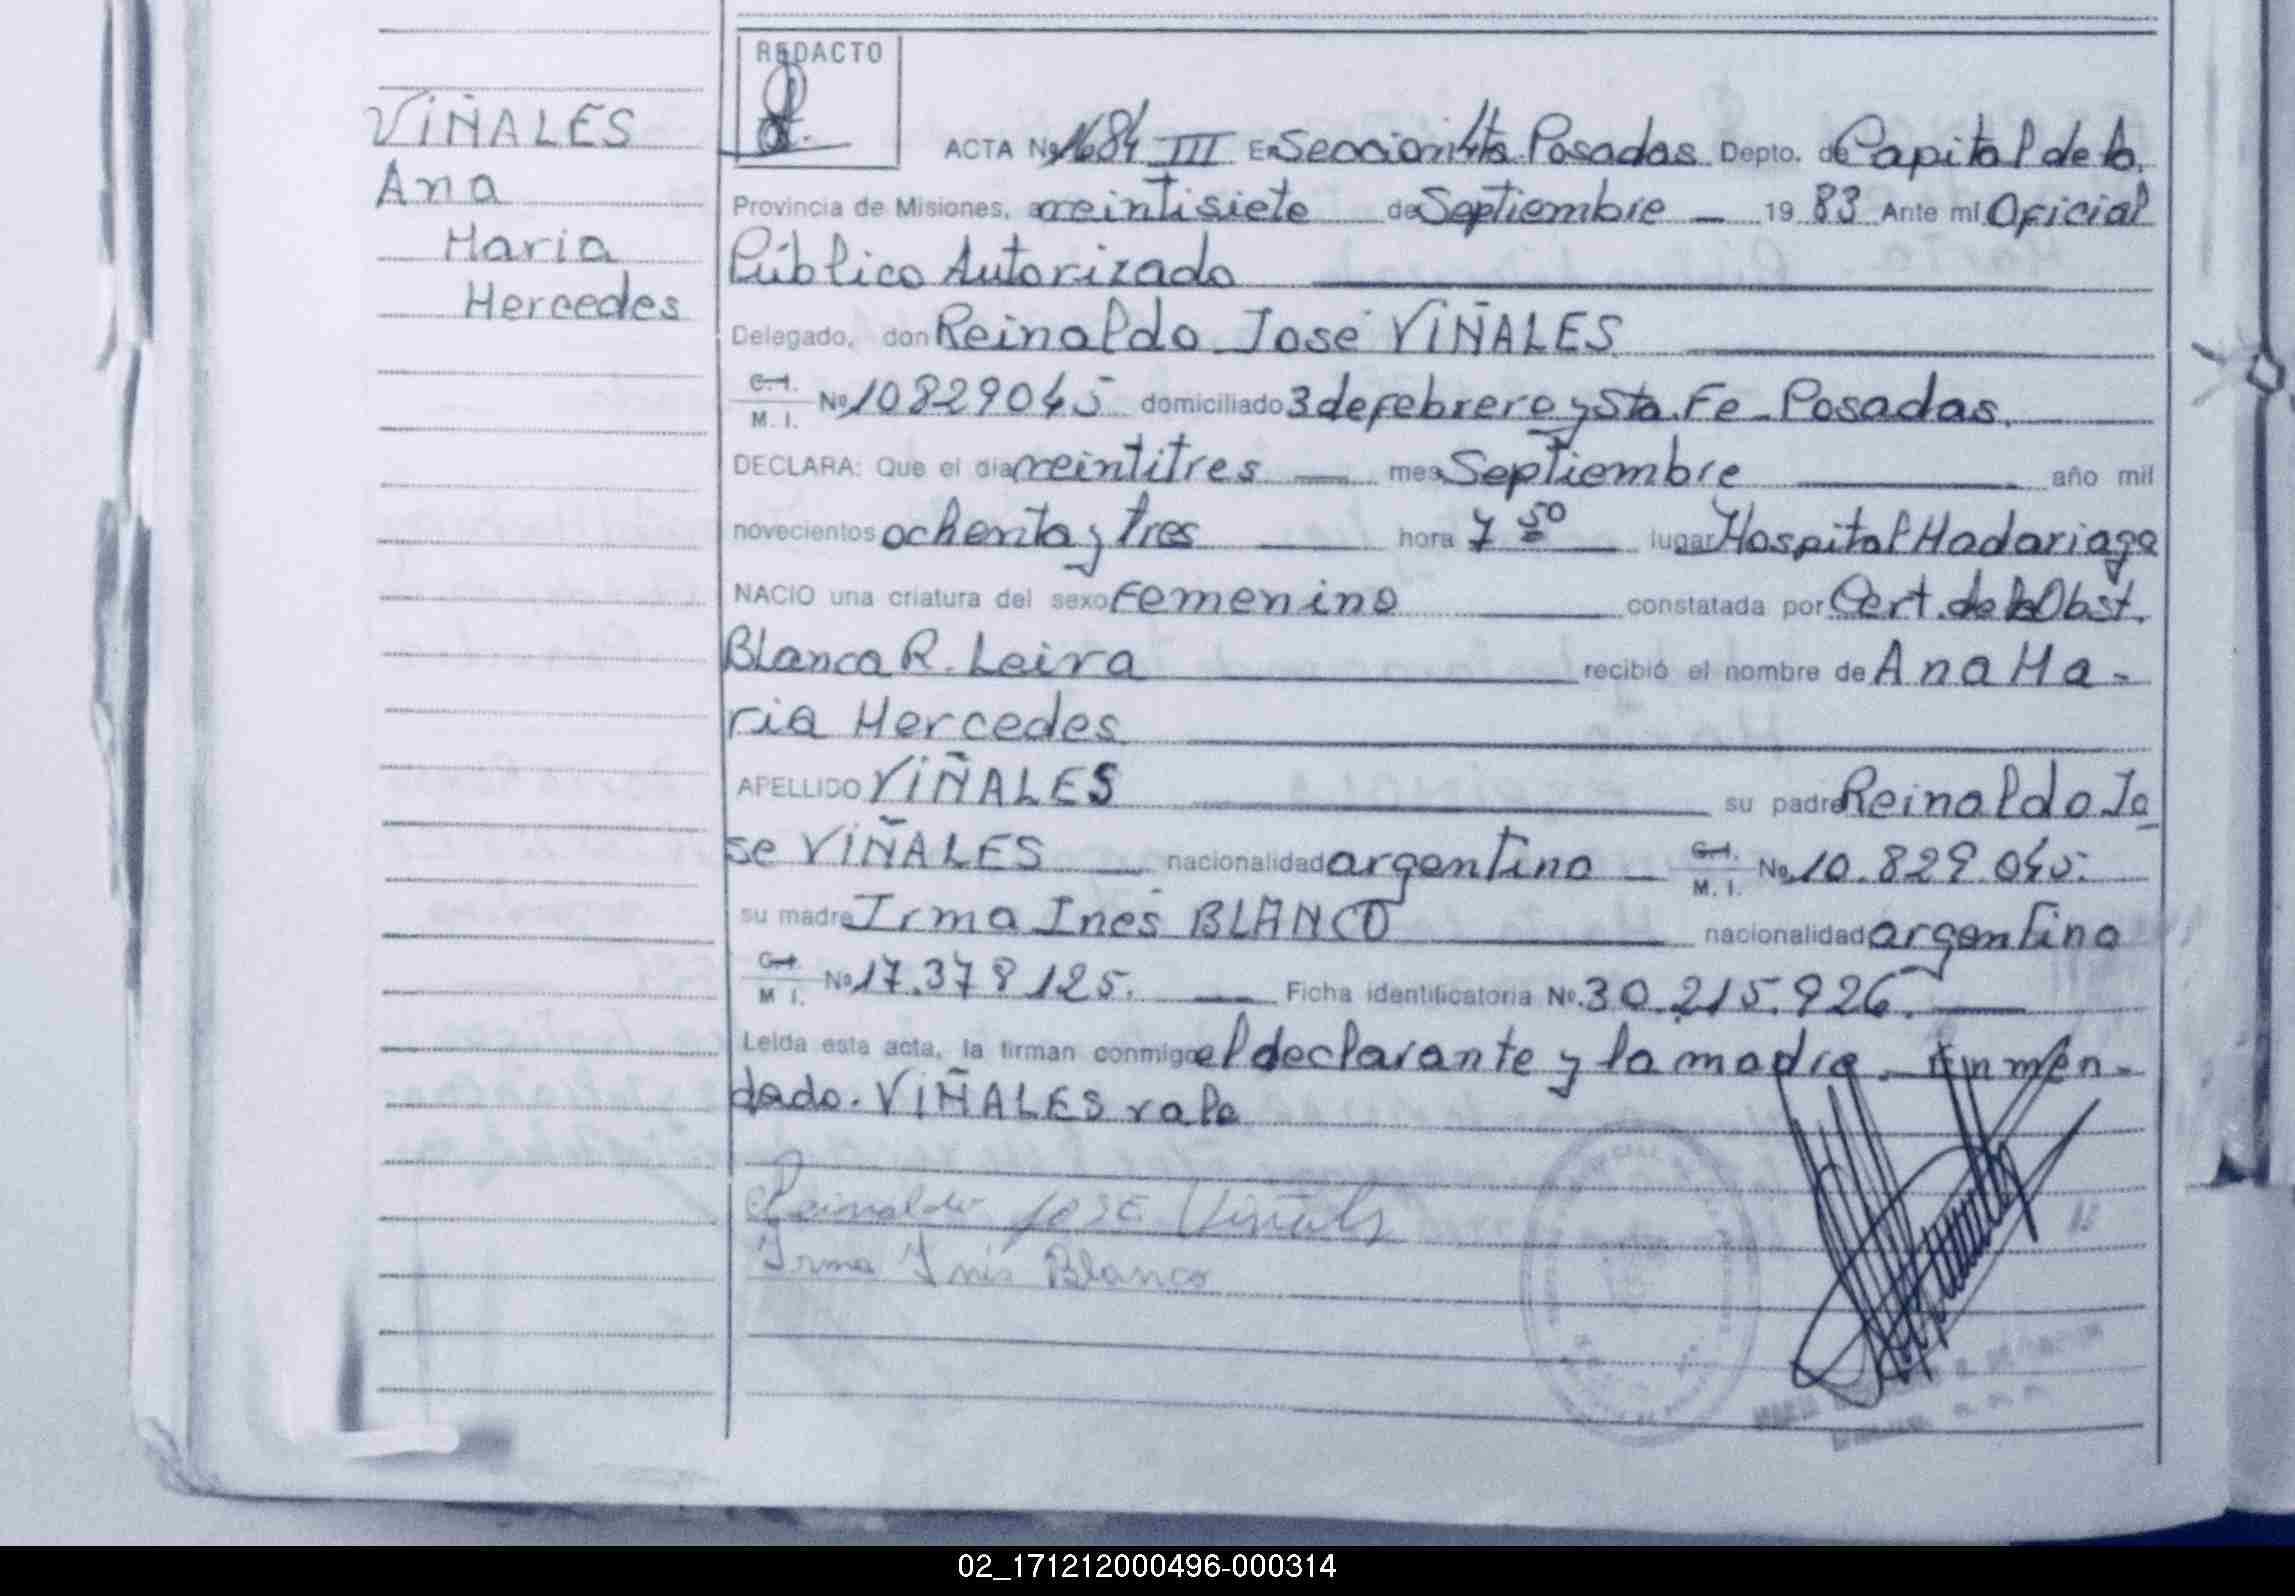 VIÑALES
Ana
Maria
Mercedes
REDACTO
ACTA Nº 1684 III En Seccion 4ta. Posadas Depto. de Capital de la
Provincia de Misiones, a veintisiete de Septiembre 1983 Ante mí Oficial
Público Autorizado
Delegado, don Reinaldo José VIÑALES
C.I. M. I. Nº 10829045 domiciliado 3 de febrero y Sta. Fe - Posadas.
DECLARA: Que el día veintitres mes Septiembre año mil
novecientos ochenta y tres hora 7 50 lugar Hospital Madariaga
NACIO una criatura del sexo femenino constatada por Cert. de la Obst.
Blanca R. Leiva recibió el nombre de Ana Ma-
ria Mercedes
APELLIDO VIÑALES su padre Reinaldo Jo
se VIÑALES nacionalidad argentino C.I. M. I. Nº 10.829.045.
su madre Irma Inés BLANCO nacionalidad argentino
C.I. M I. Nº 17.378125. Ficha identificatoria Nº. 30.215.926.
Leída esta acta, la firman conmigo el declarante y la madre. Enmen-
dado. VIÑALES vale
Reinaldo JOSE Viñales
Irma Inés Blanco
02_171212000496-000314